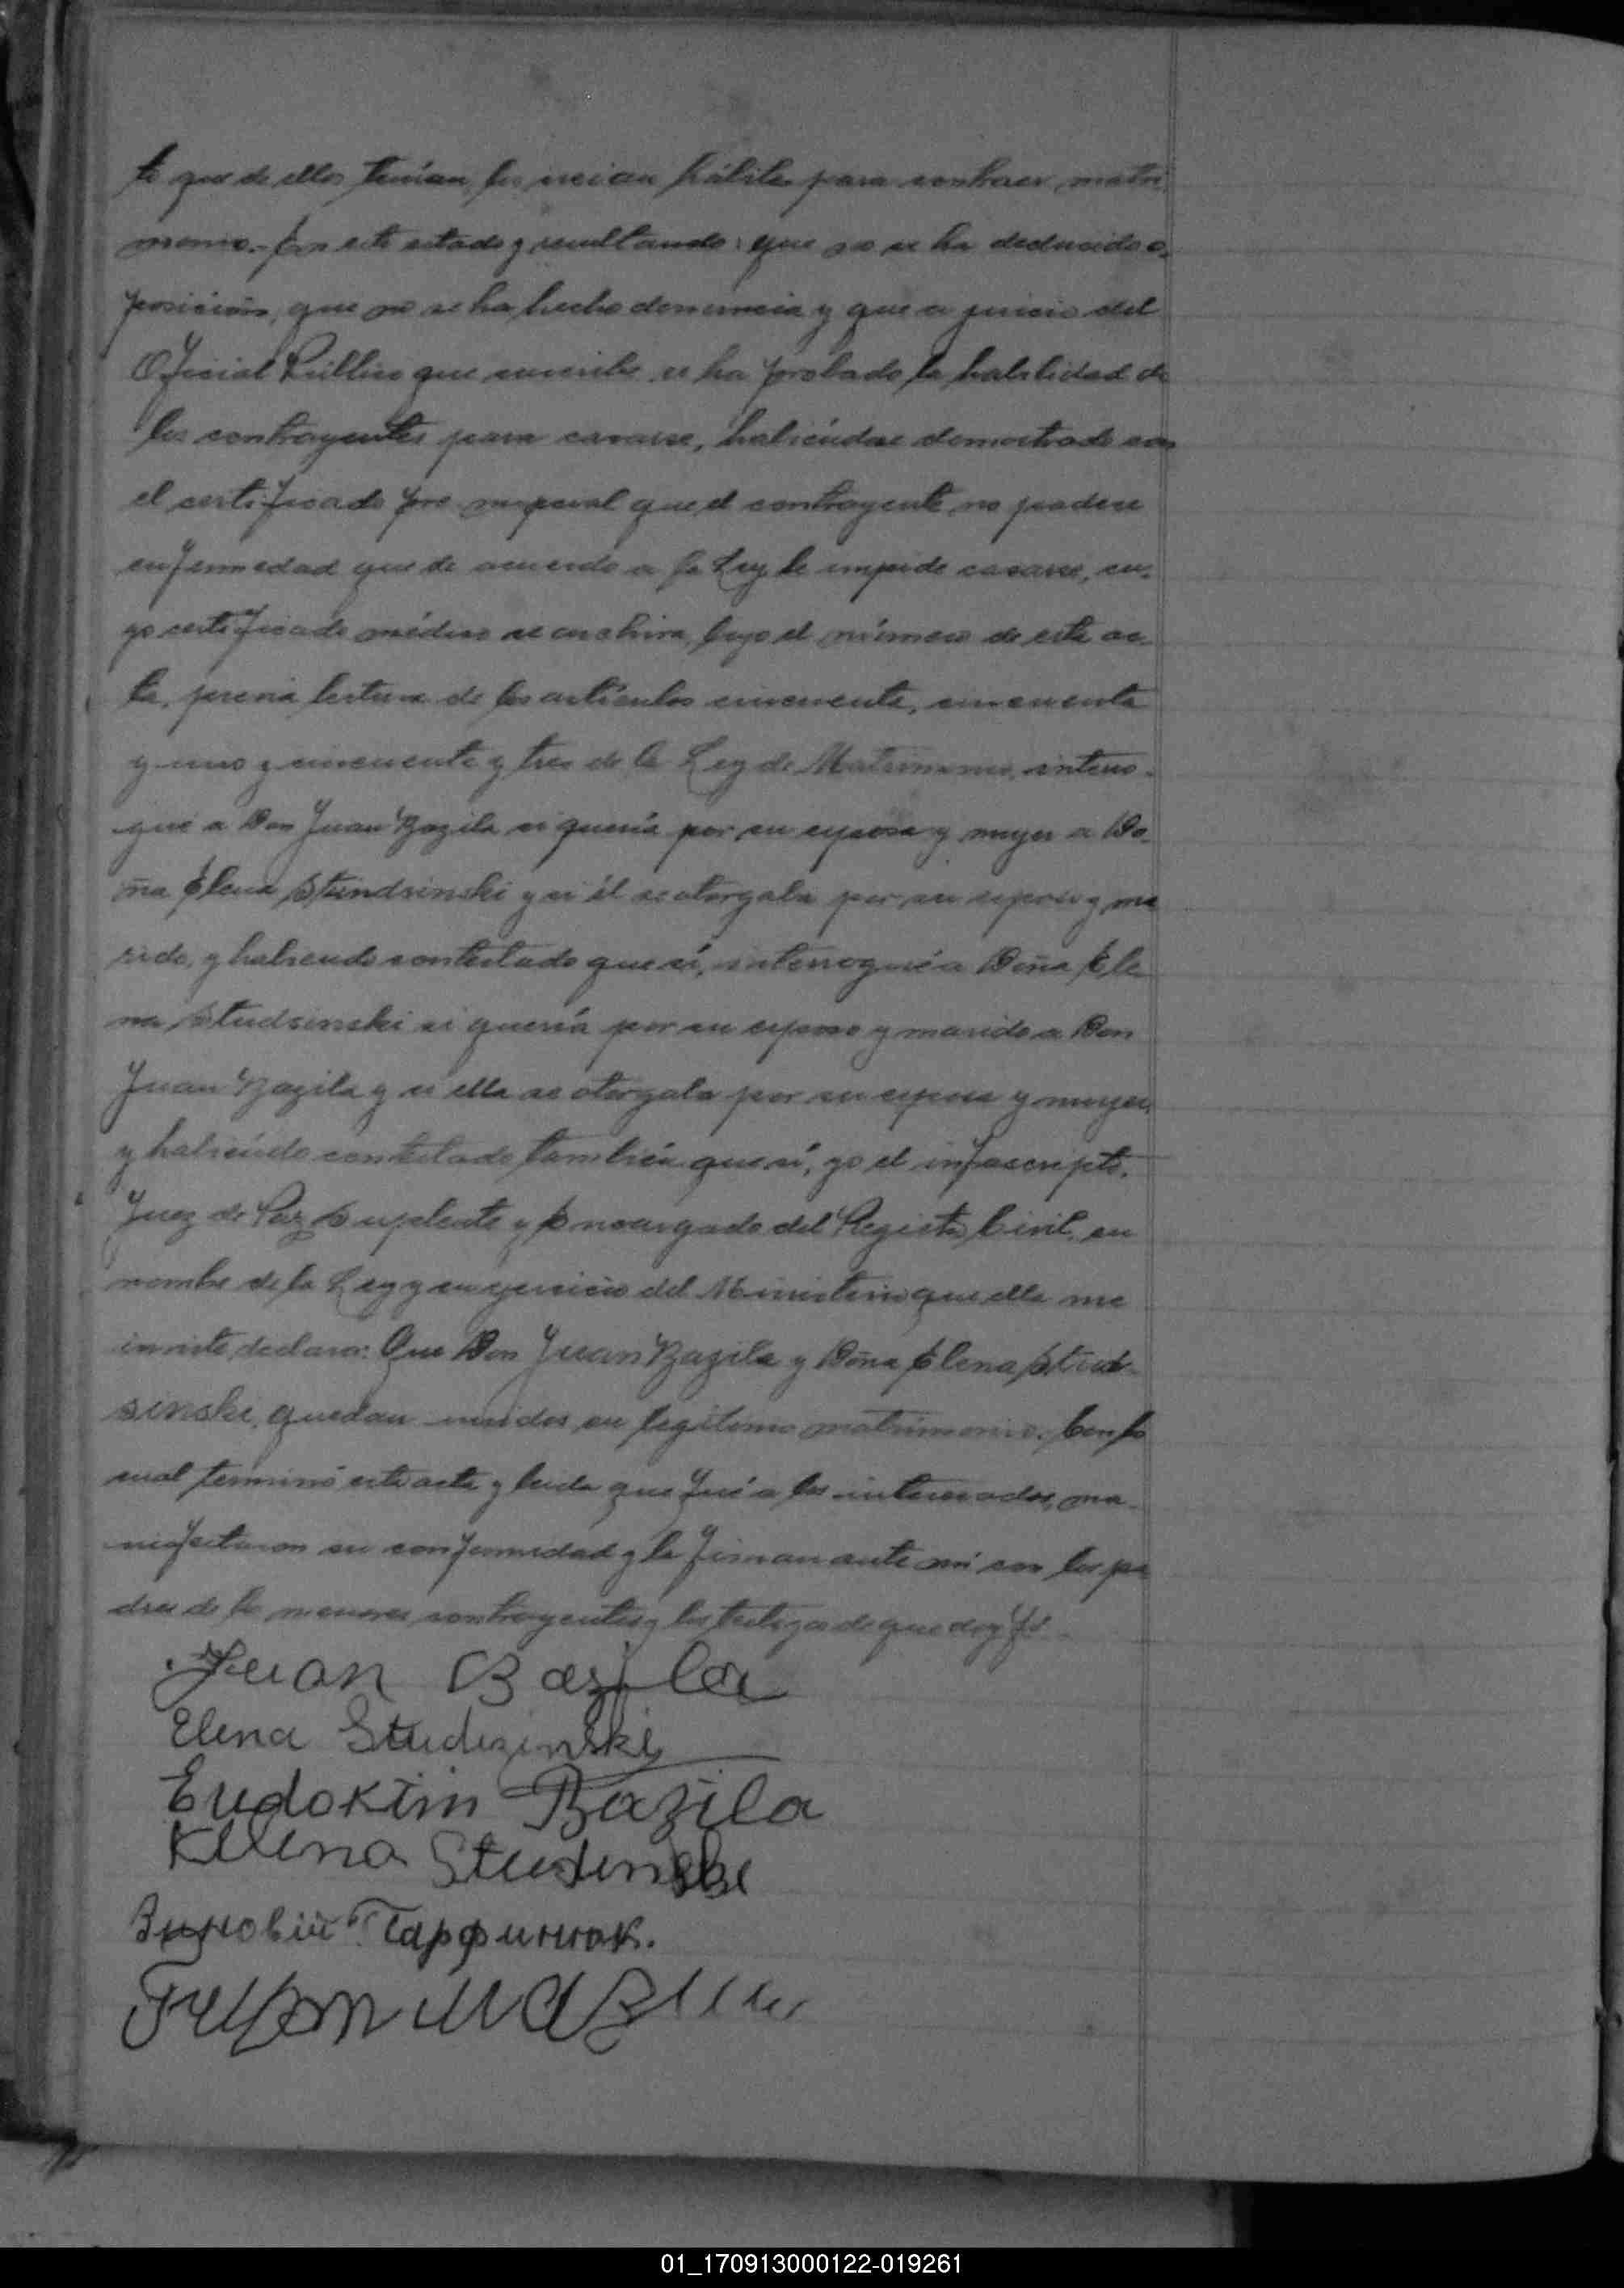 to que de ellos tenían los creían hábiles para contraer matri
monio.- En este estado y resultando: que no se ha deducido o-
posición, que no se ha hecho denuncia y que a juicio del
Oficial Público que suscribe se ha probado la habilidad de
los contrayentes para casarse, habiéndose demostrado con
el certificado pre nupcial que el contrayente no padece
enfermedad que de acuerdo a la Ley le impide casarse, cu-
yo certificado médico se archiva bajo el número de esta ac-
ta, previa lectura de los artículos cincuenta, cincuenta
y uno y cincuenta y tres de la Ley de Matrimonio, interro-
gué a Don Juan Bazila si quería por su esposa y mujer a Do-
ña Elena Studsinski y si él se otorgaba por su esposo y ma
rido, y habiendo contestado que sí, interrogué a Doña Ele
na Studsinski si quería por su esposo y marido a Don
Juan Bazila y si ella se otorgaba por su esposa y mujer,
y habiendo contestado también que sí, yo el infrascripto,
Juez de Paz Suplente y Encargado del Registro Civil, en
nombre de la Ley y en ejercicio del Ministerio que ella me
inviste, declaro: Que Don Juan Bazila y Doña Elena Stud-
sinski, quedan unidos en legítimo matrimonio. Con lo
cual terminó este acta y leida que fué a los interesados, ma-
nifestaron su conformidad y la firman ante mí con los pa
dres de los menores contrayentes y los testigos de que doy fé.-
Juan Bazila
Elena Studzinski
Eudokim Bazila
Studinski
Зиновій Парфинюк.